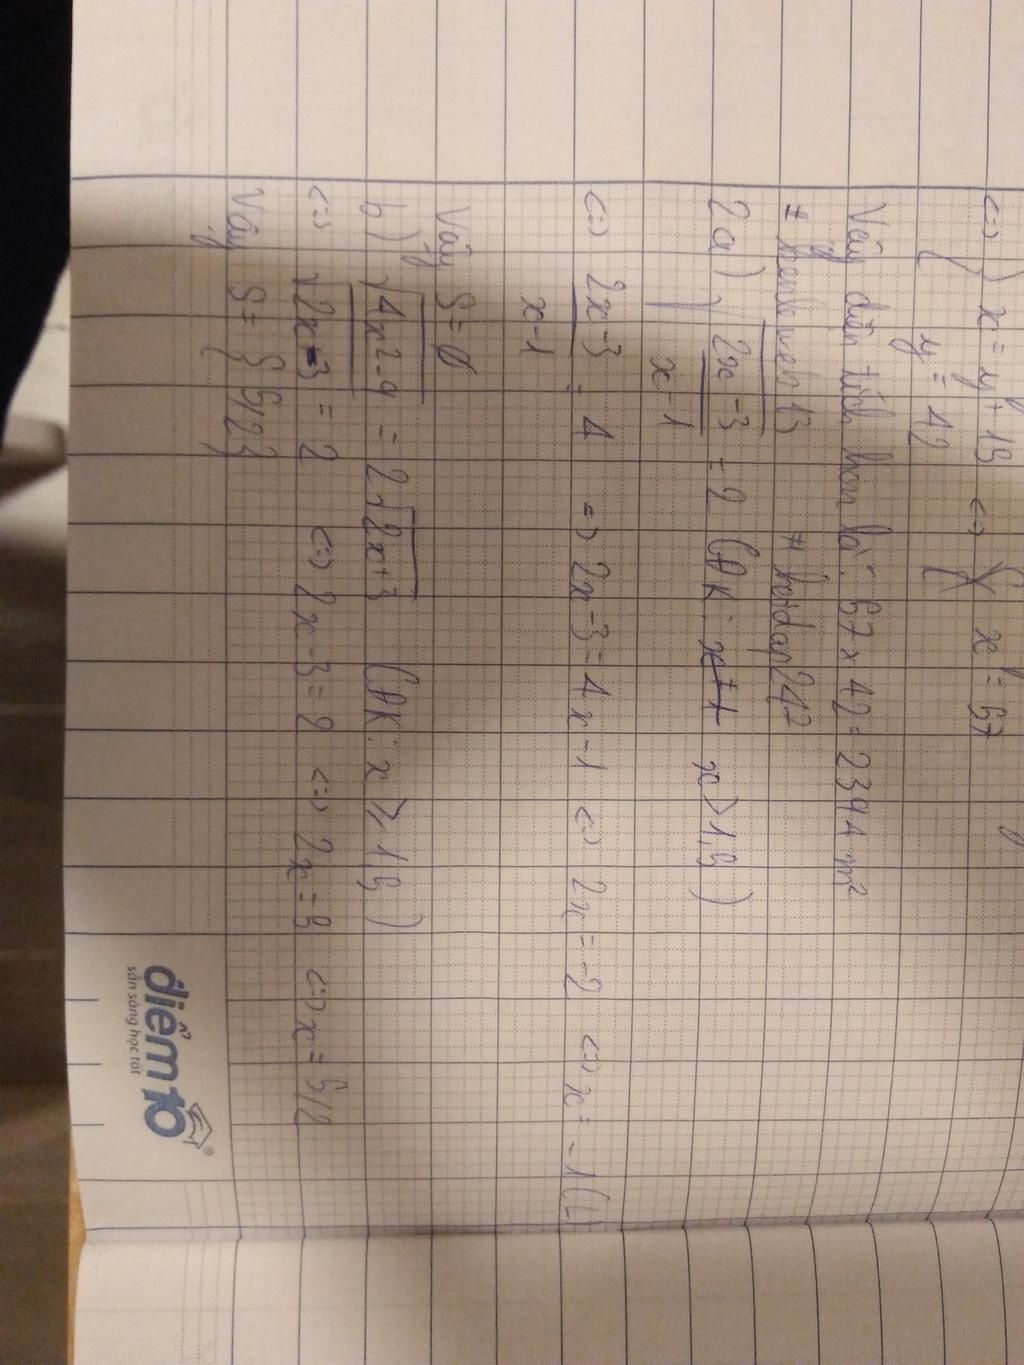 <=> { x = y + 15 <=> { x = 57
y = 42
Vậy diện tích hcn là: 57 x 42 = 2394 m²
# hoidap247
2a) √(2x-3 / x-1) = 2 (ĐK: x > 1,5)
<=> 2x-3 / x-1 = 4 => 2x-3 = 4x-1 <=> 2x = -2 <=> x = -1 (L)
Vậy S = Ø
b) √4x²-9 = 2√2x+3 (ĐK: x ≥ 1,5)
<=> √2x-3 = 2 <=> 2x-3 = 2 <=> 2x = 5 <=> x = 5/2
Vậy S = {5/2}
điểm10
sẵn sàng học tốt